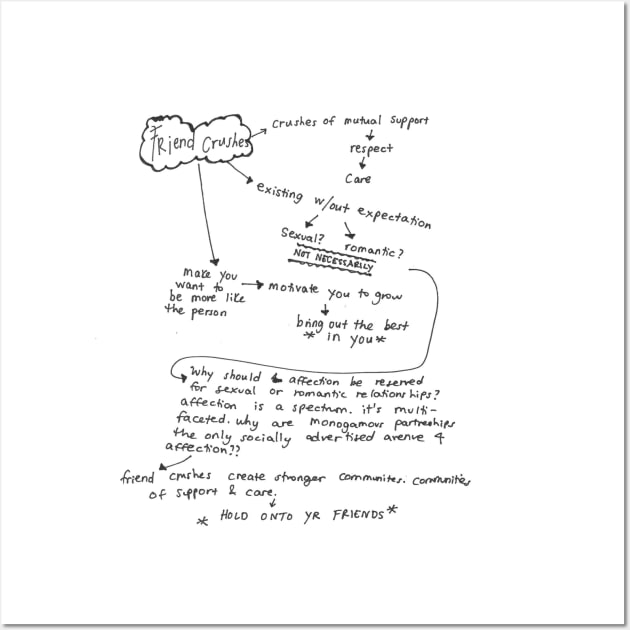 Friend Crushes
crushes of mutual support
respect
care
existing w/out expectation
sexual?
romantic?
NOT NECESSARILY
make you
want to
be more like
the person
motivate you to grow
bring out the best
* in you *
why should affection be reserved
for sexual or romantic relationships?
affection is a spectrum. it's multi-
faceted. why are monogamous partnerships
the only socially advertised avenue 4
affection??
friend crushes create stronger communites. communities
of support & care.
* HOLD ONTO YR FRIENDS *